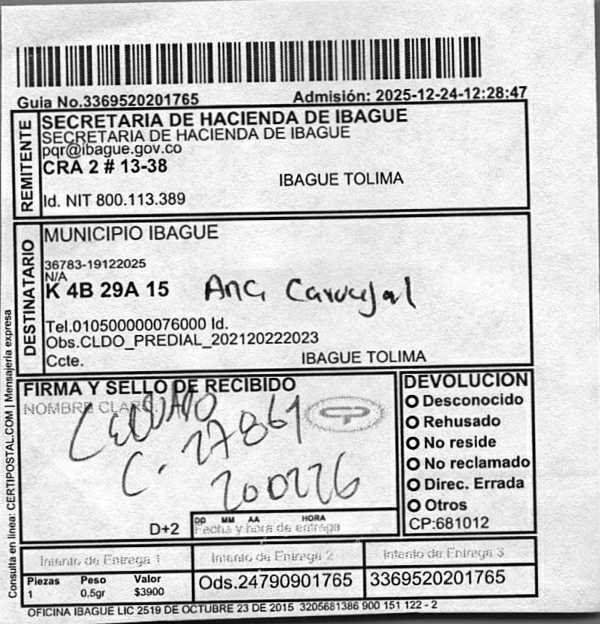 Guia No.3369520201765 Admisión: 2025-12-24-12:28:47
REMITENTE
SECRETARIA DE HACIENDA DE IBAGUE
SECRETARIA DE HACIENDA DE IBAGUE
pqr@ibague.gov.co
CRA 2 # 13-38
IBAGUE TOLIMA
Id. NIT 800.113.389
DESTINATARIO
MUNICIPIO IBAGUE
36783-19122025
N/A
K 4B 29A 15 Ana Carvajal
Tel.010500000076000 Id.
Obs.CLDO_PREDIAL_202120222023
Ccte. IBAGUE TOLIMA
FIRMA Y SELLO DE RECIBIDO
NOMBRE CLARO
C. 27861
200226
D+2
DD MM AA HORA
Fecha y hora de entrega
DEVOLUCION
Desconocido
Rehusado
No reside
No reclamado
Direc. Errada
Otros
CP:681012
Intento de Entrega 1 Intento de Entrega 2 Intento de Entrega 3
Piezas Peso Valor
1 0.5gr $3900
Ods.24790901765 3369520201765
OFICINA IBAGUE LIC 2519 DE OCTUBRE 23 DE 2015 3205681386 900 151 122 - 2
Consulta en línea: CERTIPOSTAL.COM | Mensajería expresa